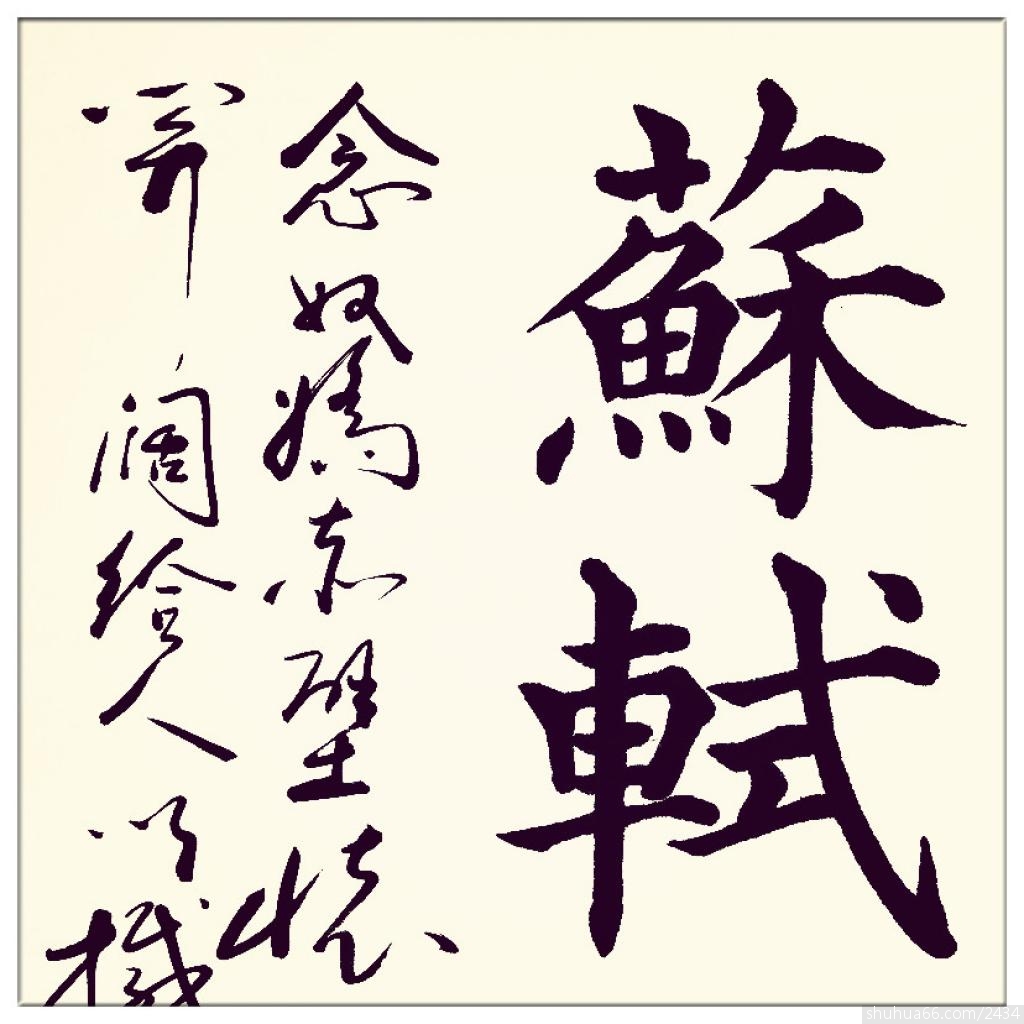 蘇軾
念奴嬌赤壁懷
開阔给人以撼
shuhua66.com/2434